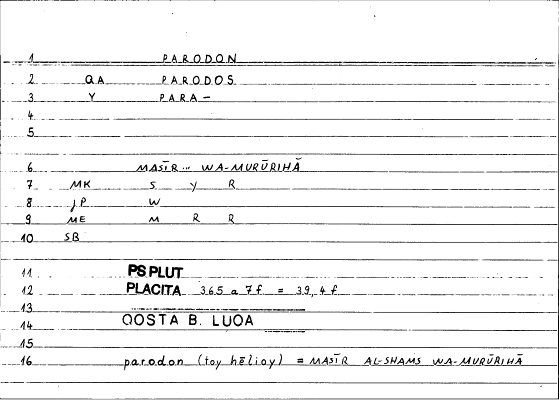 1 PARODON
2 QA PARODOS
3 Y PARA-
4
5
6 MASĪR... WA-MURŪRIHĀ
7 MK S Y R
8 JP W
9 ME M R R
10 SB
11 PS PLUT
12 PLACITA 365 a 7f = 39,4f
13
14 QOSTA B. LUQA
15
16 parodon (toy hēlioy) = MASĪR AL-SHAMS WA-MURŪRIHĀ